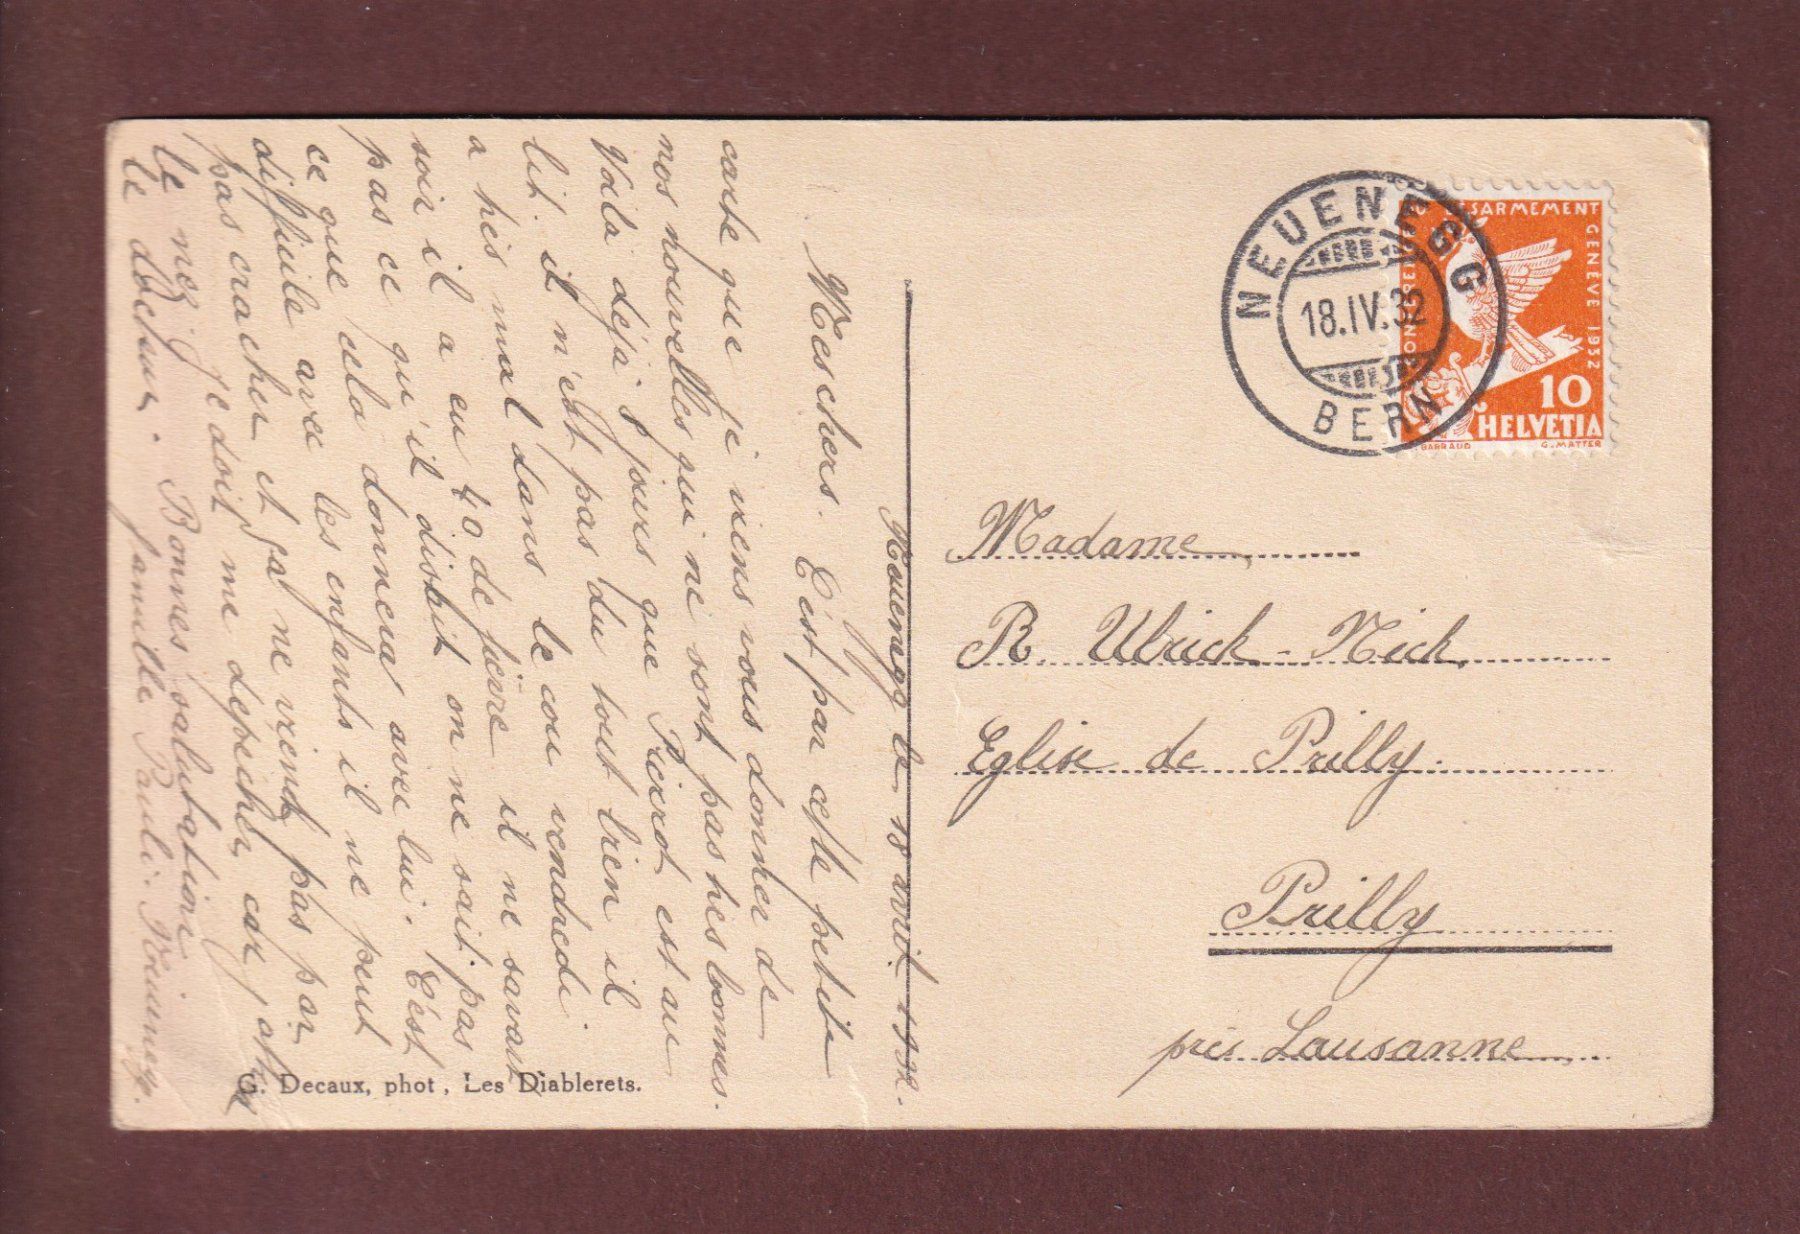 Neuenegg le 18 avril 1932.
Mes chers. C'est par cette petite
carte que je viens vous donner de
nos nouvelles qui ne sont pas tres bonnes.
Voila déjà 5 jours que Pierrot est au
lit. il n'est pas du tout bien il
a très mal dans le cou vendredi
soir il a eu 40 de fièvre il ne savait
pas ce qu'il disait on ne sait pas
ce que cela donnerat avec lui. C'est
difficile avec les enfants il ne peut
pas cracher et sa ne vient pas par
le nez. je doit me depecher car j'attend
le docteur. Bonnes salutations
famille Pauli. Neuenegg.
G. Decaux, phot, Les Diablerets.
NEUENEGG
18.IV.32
BERN
DÉSARMEMENT
GENÈVE 1932
10
HELVETIA
BARRAUD G. MATTER
Madame
R. Ulrich-Nick
Eglise de Prilly.
Prilly
près Lausanne